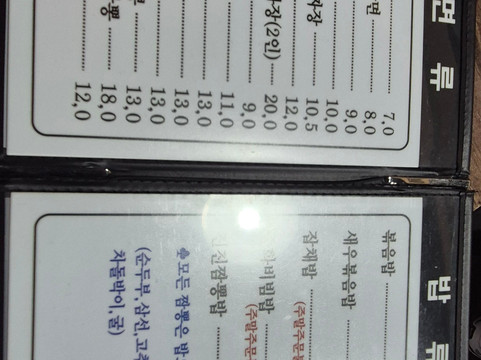 면 류
7,0
면 8,0
9,0
10,0
장 10,5
12,0
장(2인) 20,0
9,0
11,0
13,0
13,0
13,0
13,0
뽕 18,0
12,0
밥 류
볶음밥
새우볶음밥
잡채밥
(주말주문
비빔밥
(주말주문
짬뽕밥
♣모든 짬뽕은 밥
(순두부,삼선,고추
차돌박이,굴)